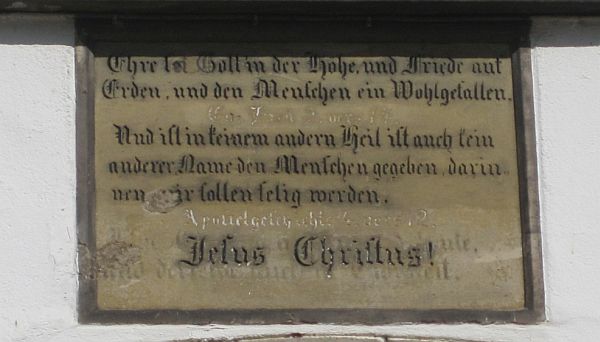 Ehre sei Gott in der Höhe, und Friede auf
Erden, und den Menschen ein Wohlgefallen.
Und ist in keinem andern Heil ist auch kein
anderer Name den Menschen gegeben, darin-
nen wir sollen selig werden.
Apostelgeschichte 4 vers 12.
Jesus Christus!
und